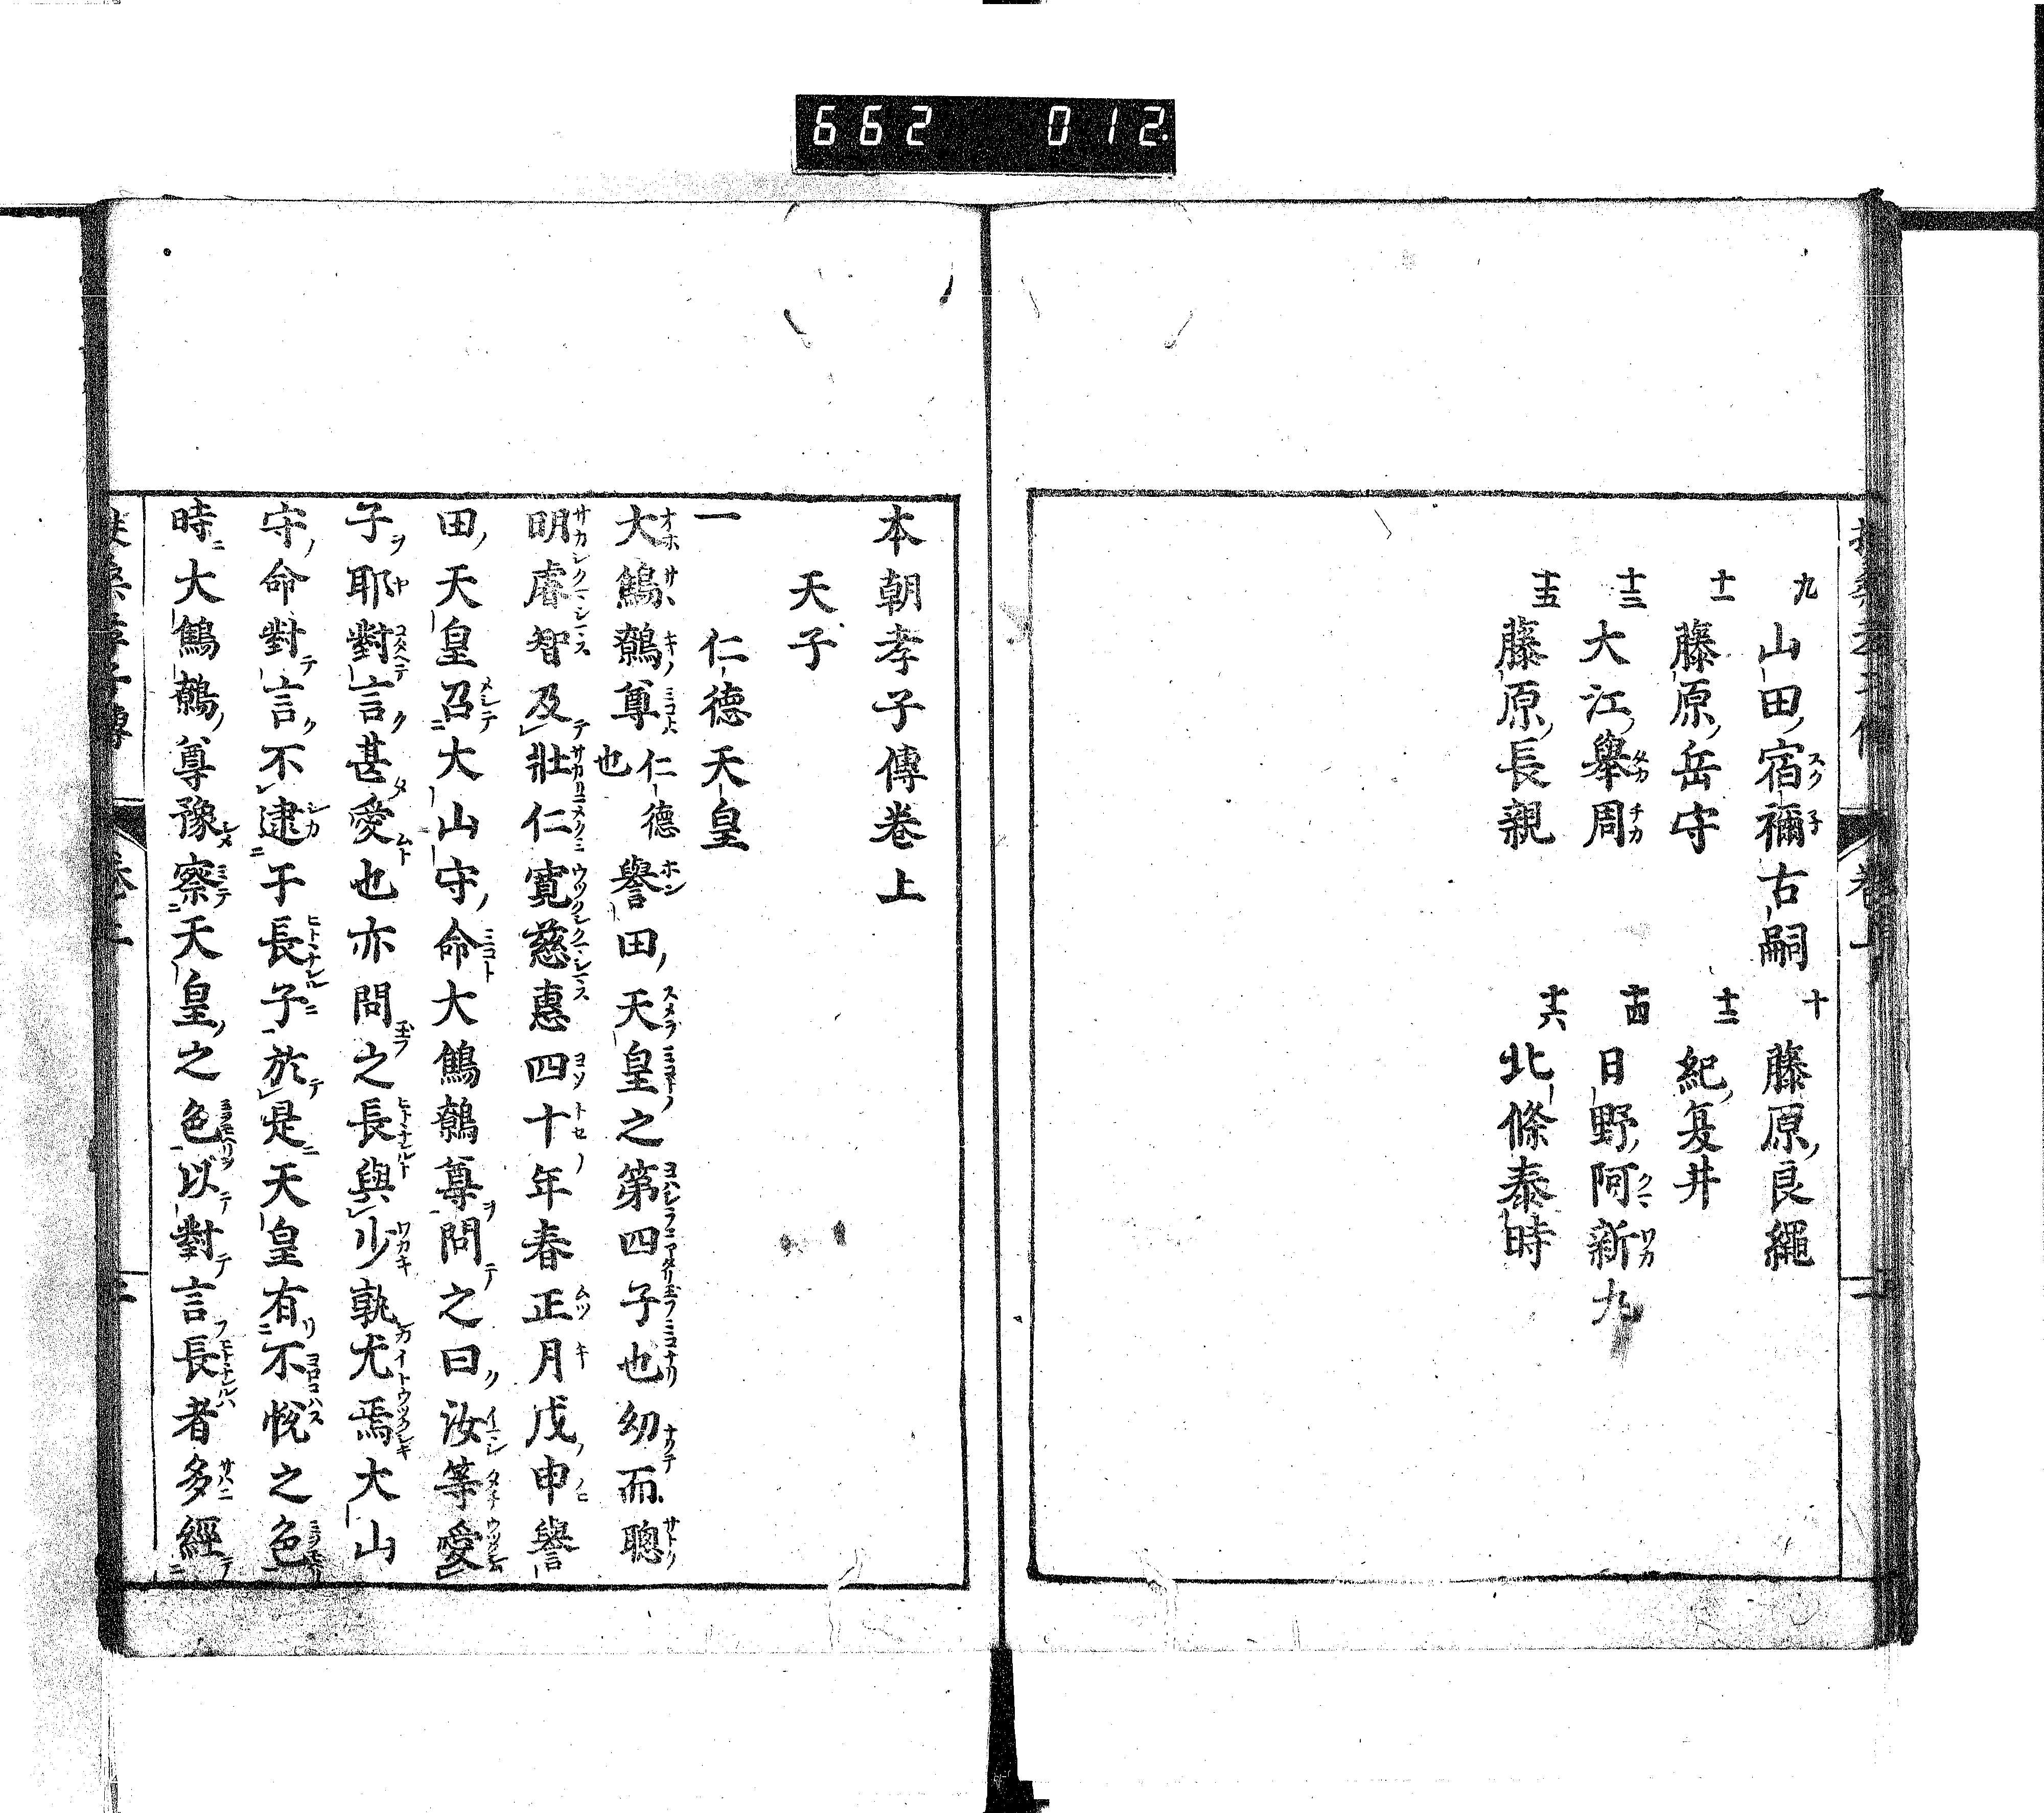 662 012
九 山田宿禰古嗣 十 藤原良繩
十一 藤原岳守 十二 紀夏井
十三 大江舉周 十四 日野阿新丸
十五 藤原長親 十六 北條泰時
本朝孝子傳卷上
天子
一 仁德天皇
大鷦鷯尊仁德也譽田天皇之第四子也幼而聰
明睿智及壯仁寬慈惠四十年春正月戊申譽
田天皇召大山守命大鷦鷯尊問之曰汝等愛
子耶對言甚愛也亦問之長與少孰尤焉大山
守命對言不逮于長子於是天皇有不悅之色
時大鷦鷯尊豫察天皇之色以對言長者多經